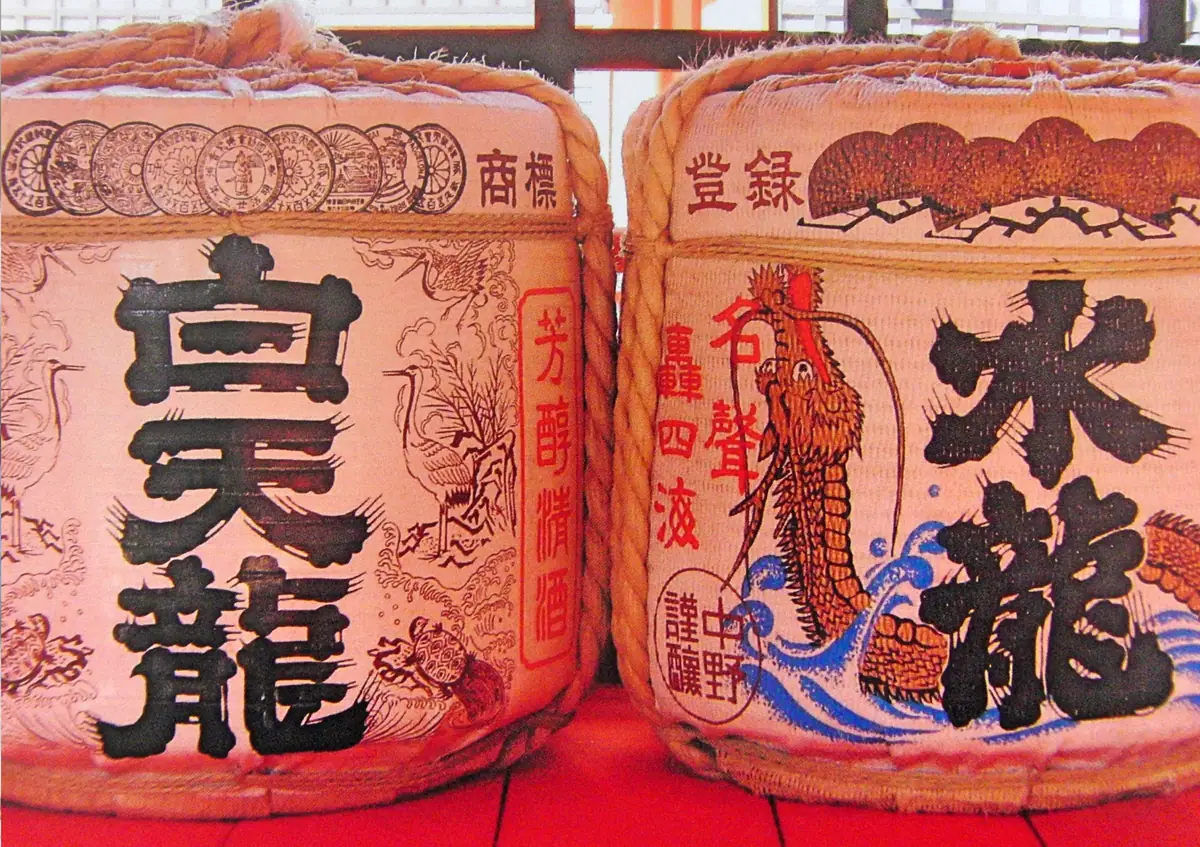 商標
白天龍
芳醇清酒
登録
水龍
名聲
轟四海
中野
謹釀